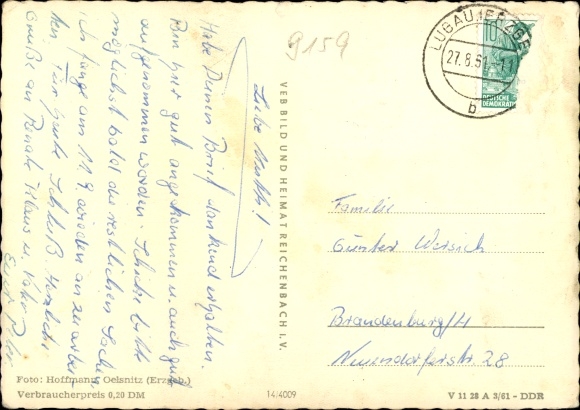 Liebe
Habe Deinen Brief dankend erhalten.
Bin hier gut angekommen u. auch gut
aufgenommen worden. Schicke bitte
möglichst bald die restlichen Sachen
Ich fange am 11.9. wieder an zu arbeiten
Für heute Schluß Herzliche
Grüße an Renate Klaus u.
9159
VEB BILD UND HEIMAT REICHENBACH I. V.
LUGAU (ERZGEB
27.8.61-11
b
10
DEUTSCHE
DEMOKRAT
Familie
Günter Wersich
Brandenburg/H
Neuendorferstr. 28
Foto: Hoffmann, Oelsnitz (Erzgeb.)
Verbraucherpreis 0,20 DM
14/4009
V 11 28 A 3/61 - DDR